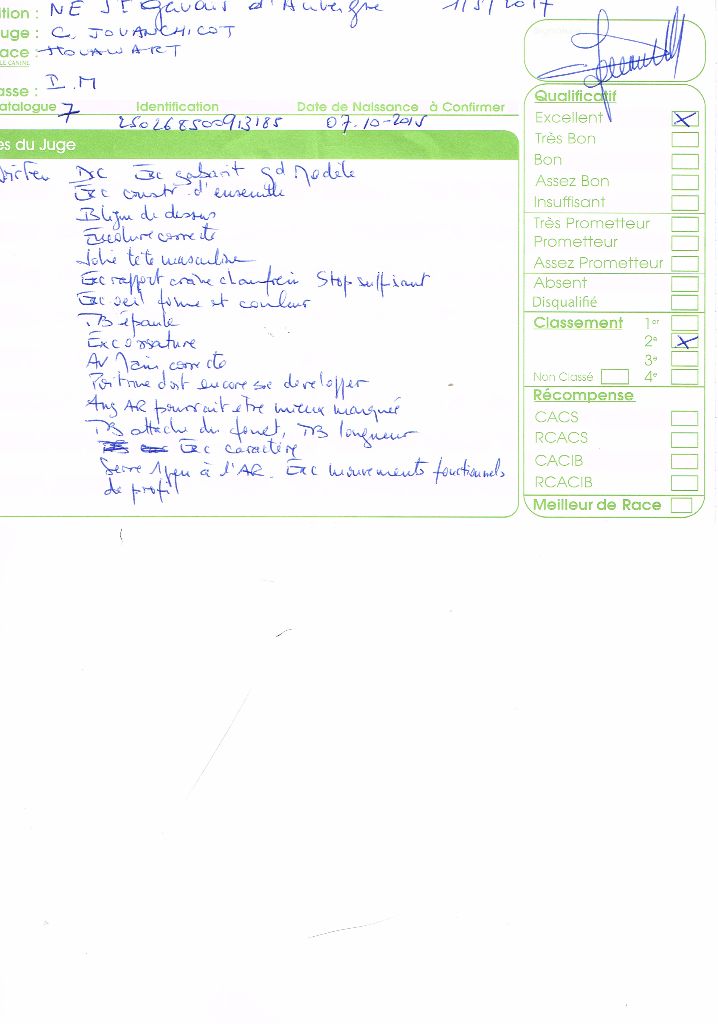 ition : NE St Gervais d'Auvergne 1/5/2017
uge : C. JOUANCHICOT
ace : HOVAWART
LE CANINE
asse : I.M
atalogue 7 Identification Date de Naissance à Confirmer
250268500913185 07-10-2015
es du Juge
Exc gabarit gd Modèle
Exc constr. d'ensemble
B ligne de dessus
Encolure correcte
Jolie tête masculine
Exc rapport crâne chanfrein Stop suffisant
Exc oeil forme et couleur
TB épaule
Exc ossature
Av main correcte
Poitrine doit encore se developper
Ang AR pourrait être mieux marquée
TB attache du fouet, TB longueur
Exc caractère
Serre 1 peu à l'AR. Exc mouvements fonctionnels
de profil
Qualificatif
Excellent
Très Bon
Bon
Assez Bon
Insuffisant
Très Prometteur
Prometteur
Assez Prometteur
Absent
Disqualifié
Classement 1er
2e
3e
Non Classé 4e
Récompense
CACS
RCACS
CACIB
RCACIB
Meilleur de Race